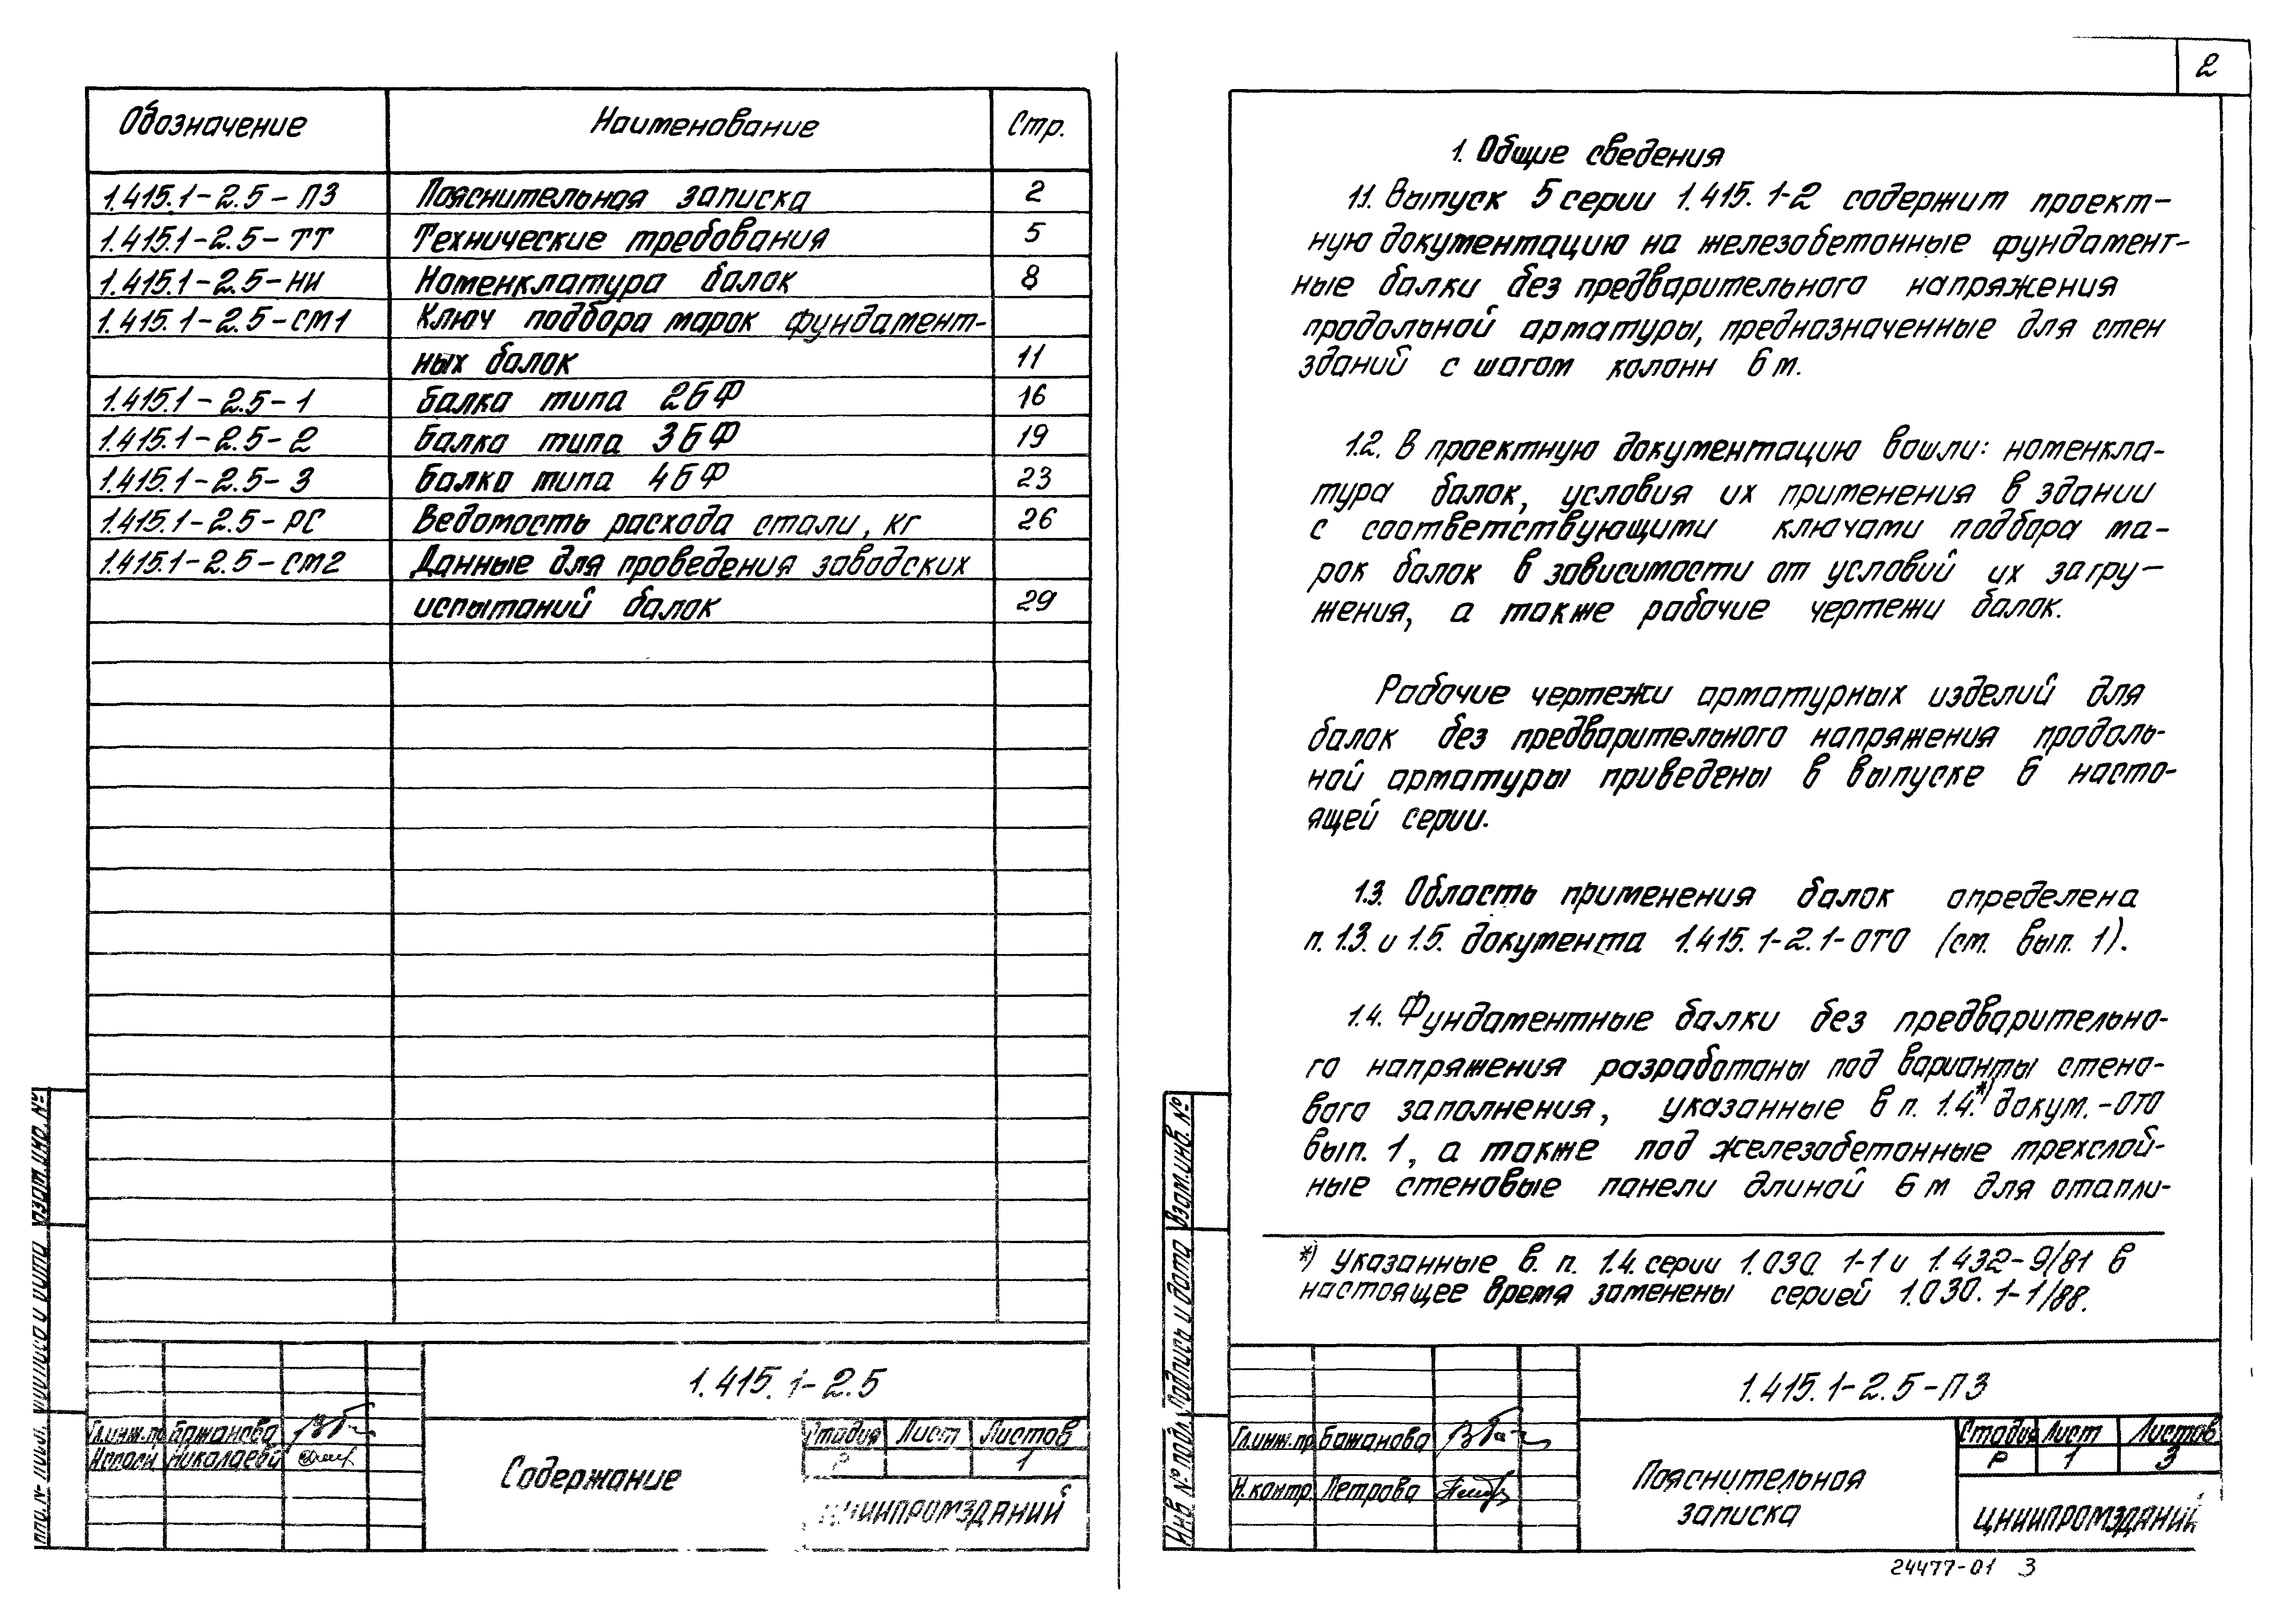 Обозначение Наименование Стр.
1.415.1-2.5-ПЗ Пояснительная записка 2
1.415.1-2.5-ТТ Технические требования 5
1.415.1-2.5-НИ Номенклатура балок 8
1.415.1-2.5-СМ1 Ключ подбора марок фундамент-
ных балок 11
1.415.1-2.5-1 Балка типа 2БФ 16
1.415.1-2.5-2 Балка типа 3БФ 19
1.415.1-2.5-3 Балка типа 4БФ 23
1.415.1-2.5-РС Ведомость расхода стали, кг 26
1.415.1-2.5-СМ2 Данные для проведения заводских
испытаний балок 29
1.415.1-2.5
Гл.инж.пр Бажанова
Николаева
Содержание
Стадия Лист Листов
Р 1
ЦНИИПРОМЗДАНИЙ
2
1. Общие сведения
1.1. Выпуск 5 серии 1.415.1-2 содержит проект-
ную документацию на железобетонные фундамент-
ные балки без предварительного напряжения
продольной арматуры, предназначенные для стен
зданий с шагом колонн 6 м.
1.2. В проектную документацию вошли: номенкла-
тура балок, условия их применения в здании
с соответствующими ключами подбора ма-
рок балок в зависимости от условий их загру-
жения, а также рабочие чертежи балок.
Рабочие чертежи арматурных изделий для
балок без предварительного напряжения продоль-
ной арматуры приведены в выпуске 6 насто-
ящей серии.
1.3. Область применения балок определена
п. 1.3. и 1.5. документа 1.415.1-2.1-ОТО (см. вып. 1).
1.4. Фундаментные балки без предварительно-
го напряжения разработаны под варианты стено-
вого заполнения, указанные в п. 1.4.*) докум.-ОТО
вып. 1, а также под железобетонные трехслой-
ные стеновые панели длиной 6 м для отапли-
*) Указанные в. п. 1.4. серии 1.030.1-1 и 1.432-9/81 в
настоящее время заменены серией 1.030.1-1/88.
Взам.инв.№
Подпись и дата
Инв № подл.
1.415.1-2.5-ПЗ
Гл.инж.пр Бажанова
Н.контр Петрова
Пояснительная
записка
Стадия Лист Листов
Р 1 3
ЦНИИПРОМЗДАНИЙ
24477-01 3